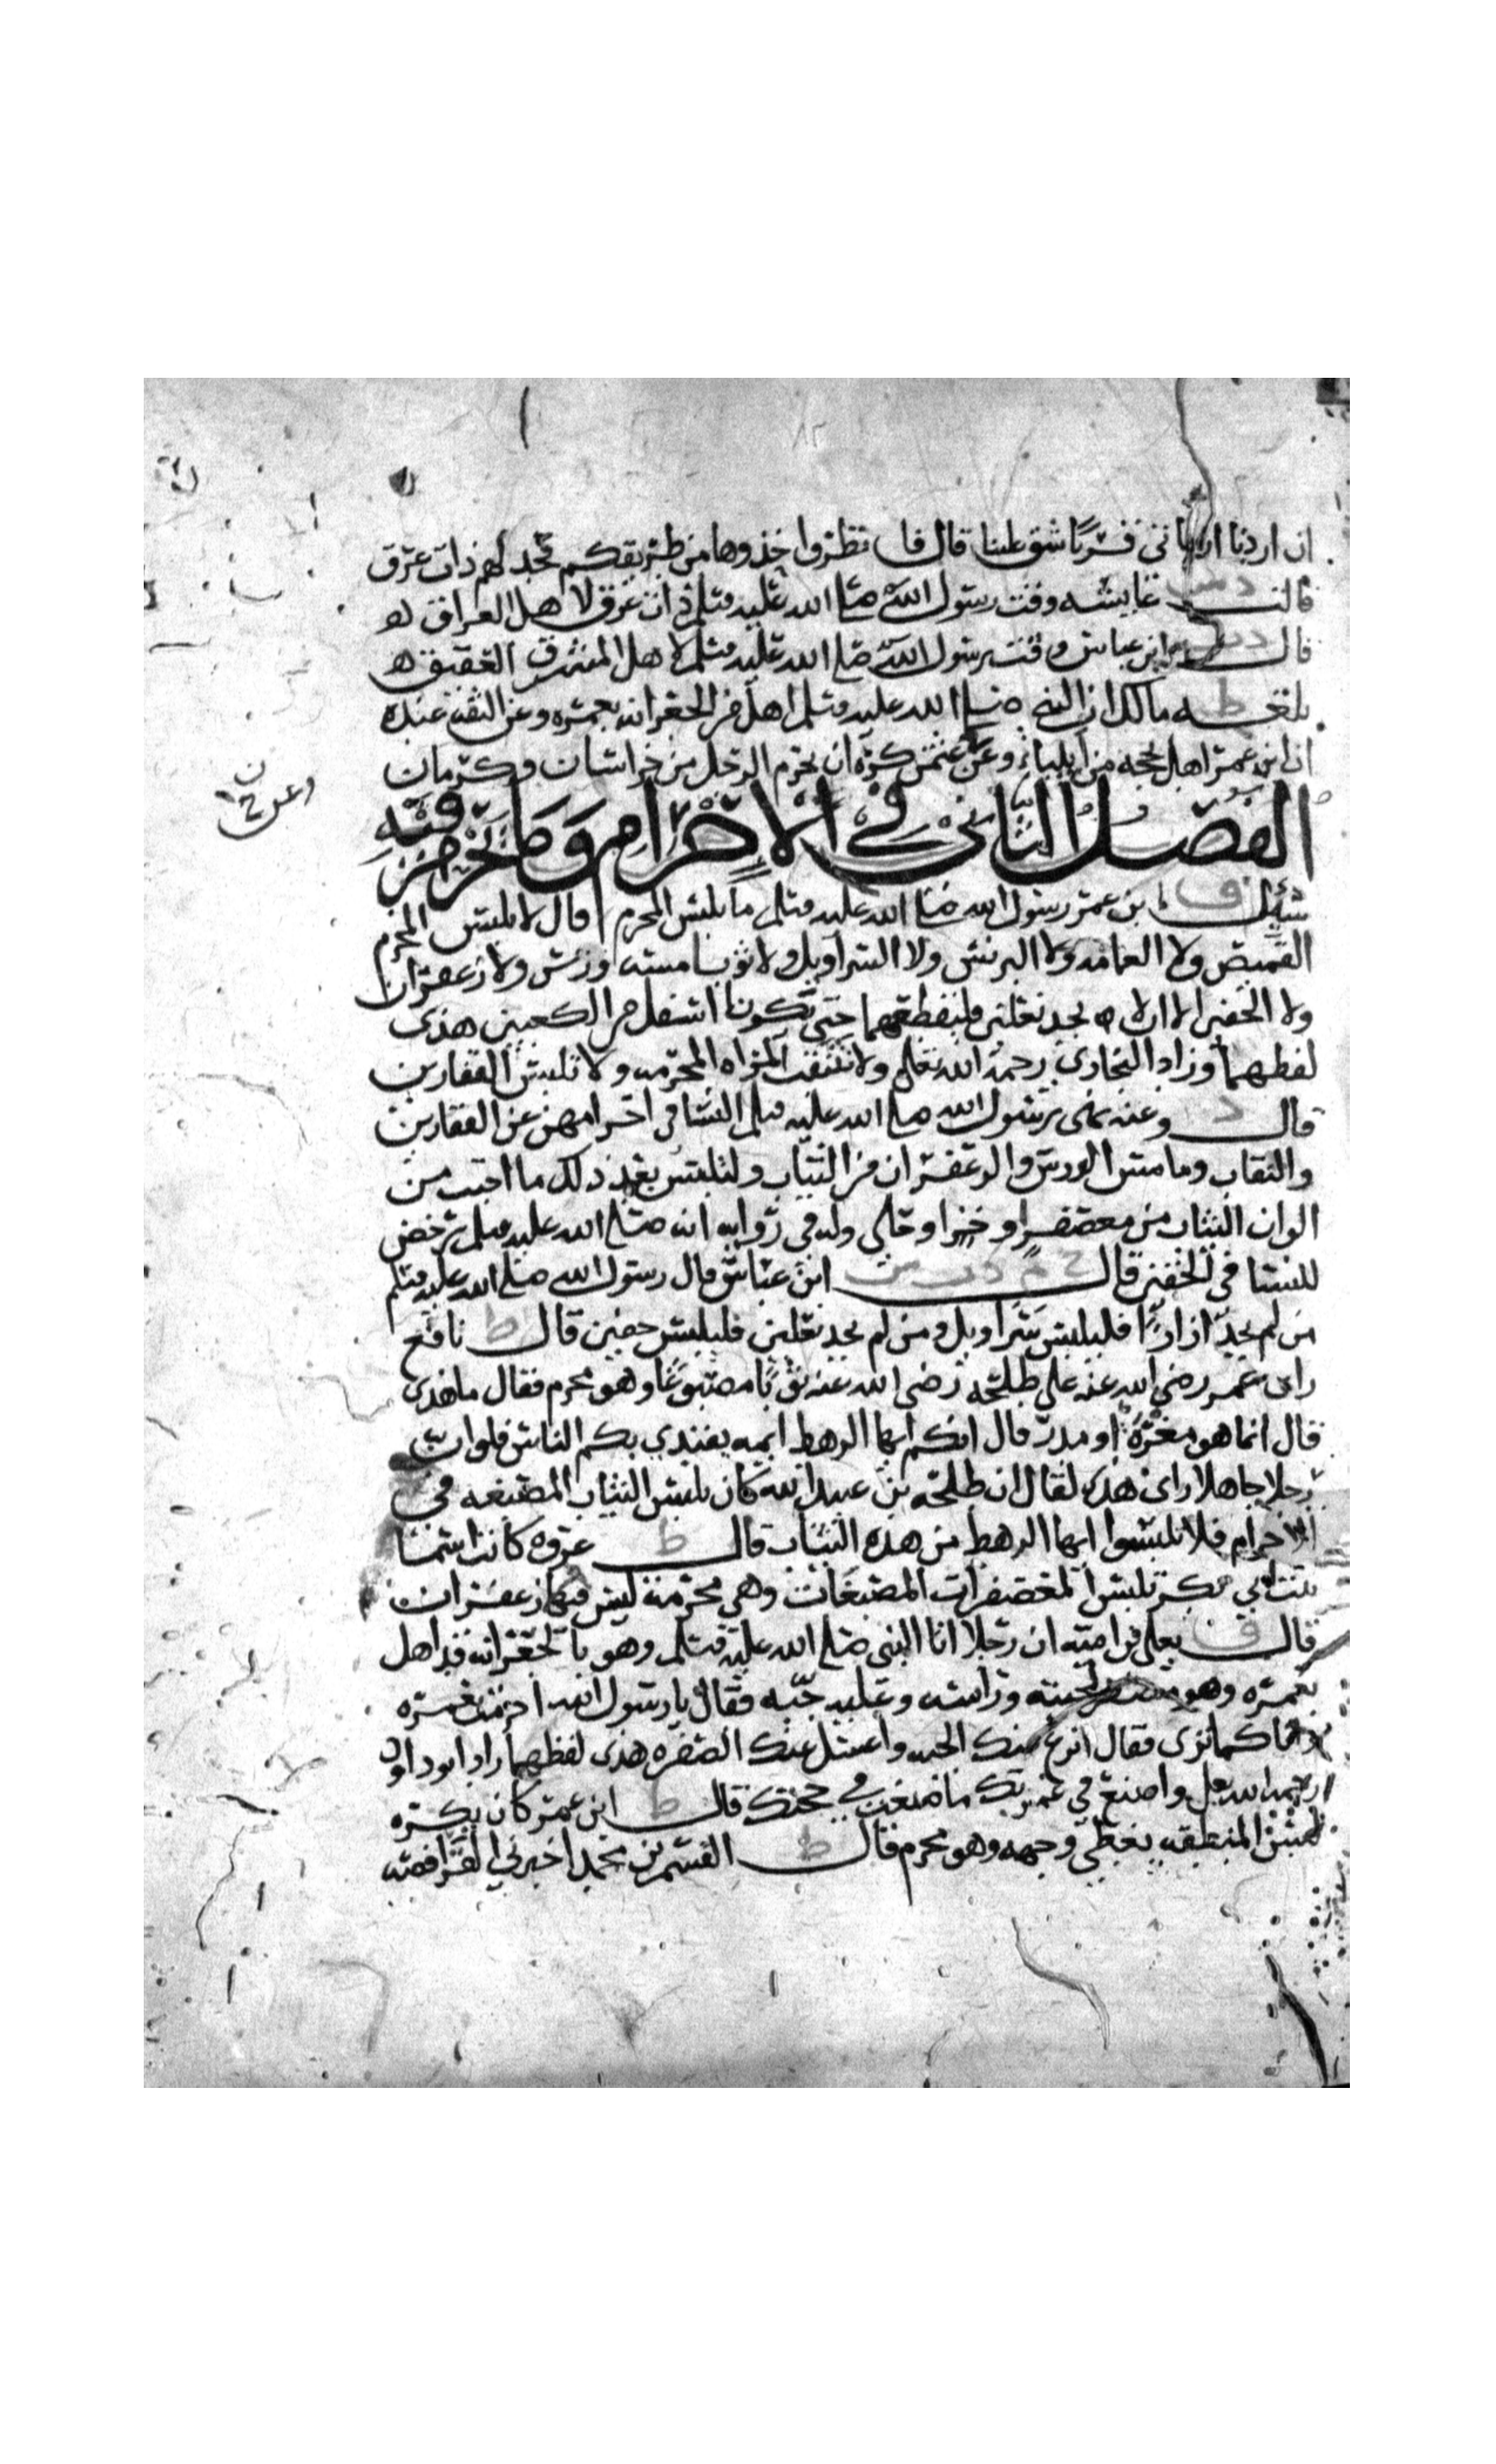 ان اردنا ان ناتي قرنا شق علينا قال فانظروا حذوها من طريقكم فحد لهم ذات عرق
قالت د س عايشه وقت رسول الله صلى الله عليه وسلم ذات عرق لاهل العراق
قال د ت ابن عباس وقت رسول الله صلى الله عليه وسلم لاهل المشرق العقيق
بلغ ط مالك ان النبي صلى الله عليه وسلم اهل من الجعرانه بعمره وعن الثقه عنده
ان ابن عمر اهل بحجه من ايلياء وعن عثمن كره ان يحرم الرجل من خراسان وكرمان
الفصل الثاني في الاحرام وما يحرم فيه
سئل ق ابن عمر رسول الله صلى الله عليه وسلم ما يلبس المحرم قال لا يلبس المحرم
القميص ولا العمامه ولا البرنس ولا السراويل ولا ثوبا مسه ورس ولا زعفران
ولا الخفين الا ان لا يجد نعلين فليقطعهما حتى تكونا اسفل من الكعبين هذى
لفظهما وزاد البخاري رحمه الله تعلى ولا تنتقب المراه المحرمه ولا تلبس القفازين
قال د وعنه نهى رسول الله صلى الله عليه وسلم النسا في احرامهن عن القفازين
والنقاب وما مس الورس والزعفران من الثياب ولتلبس بعد ذلك ما احبت من
الوان الثياب من معصفر او خز او حلي وله في روايه انه صلى الله عليه وسلم رخص
للنسا في الخفين قال خ م د ت س ابن عباس قال رسول الله صلى الله عليه وسلم
من لم يجد ازارا فليلبس سراويل ومن لم يجد نعلين فليلبس خفين قال ط نافع
راى عمر رضي الله عنه على طلحه رضي الله عنه ثوبا مصبوغا وهو محرم فقال ما هذى
قال انما هو مغره او مدر قال انكم ايها الرهط ايمه يقتدي بكم الناس فلو ان
رجلا جاهلا راى هذى لقال ان طلحه بن عبيد الله كان يلبس الثياب المصبغه في
الاحرام فلا تلبسوا ايها الرهط من هذه الثياب قال ط عروه كانت اسما
بنت ابي بكر تلبس المعصفرات المصبغات وهي محرمه ليس فيها زعفران
قال ق يعلى بن اميه ان رجلا اتا النبي صلى الله عليه وسلم وهو بالجعرانه قد اهل
بعمره وهو لحيته وراسه وعليه جبه فقال يا رسول الله احرمت بعمره
وانا كما ترى فقال انزع عنك الجبه واغسل عنك الصفره هذى لفظهما زاد ابو داود
رحمه الله واصنع في عمرتك ما صنعت في حجتك قال ط ابن عمر كان يكره
لبس المنطقه يغطي وجهه وهو محرم قال ط القسم بن محمد اخبرني الفرافصه